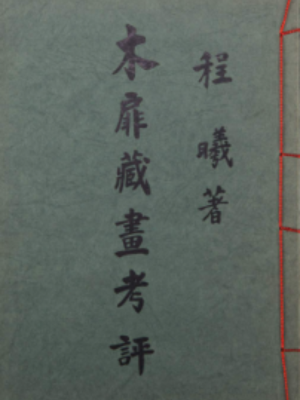 程曦著
木扉藏畫考評